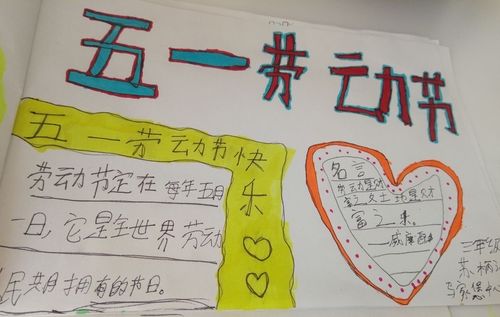 五一劳动节
五一劳动节快
乐
劳动节定在每年五月
一日,它是全世界劳动
民共同拥有的节日。
名言
劳动是财
富之父土地是财
富之母。
三年级